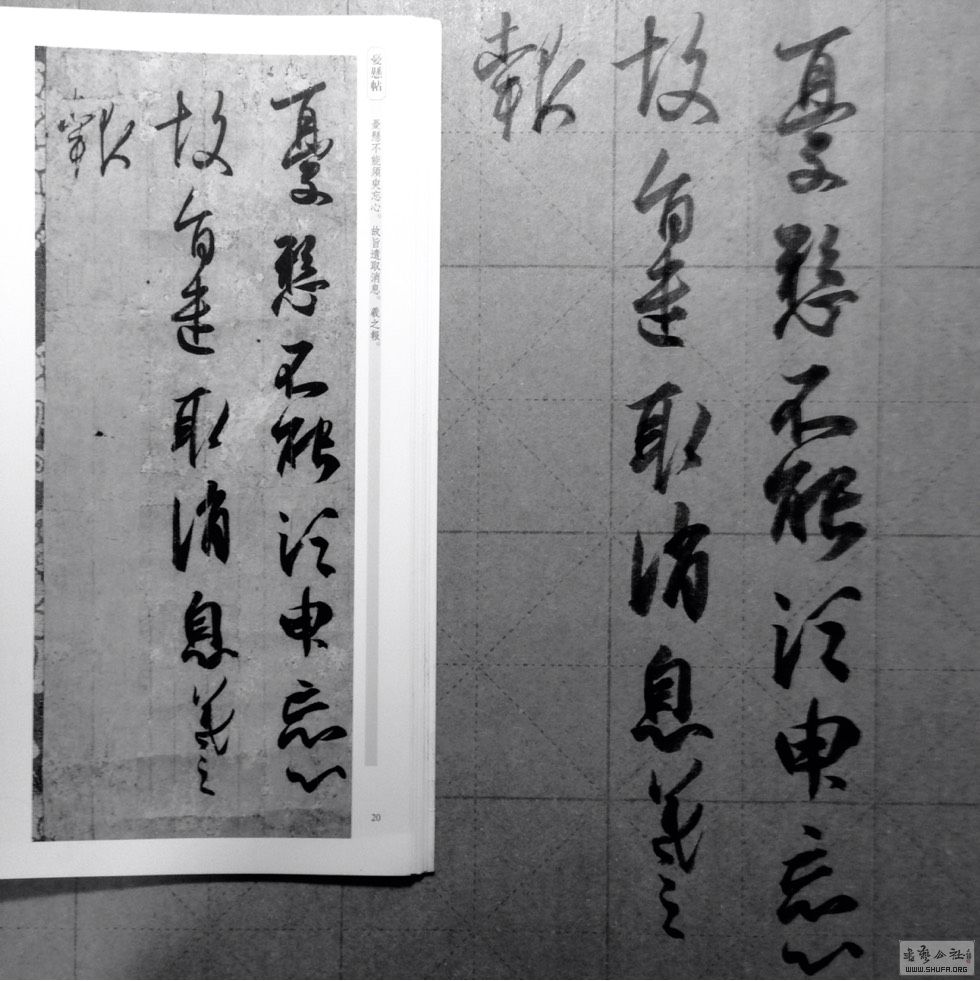 憂懸帖
憂懸不能須臾忘心。故旨遣取消息。羲之報。
憂懸不能須臾忘心
故旨遣取消息羲之
報
20
憂懸不能須臾忘心
故旨遣取消息羲之
報
書藝公社
WWW.SHUFA.ORG